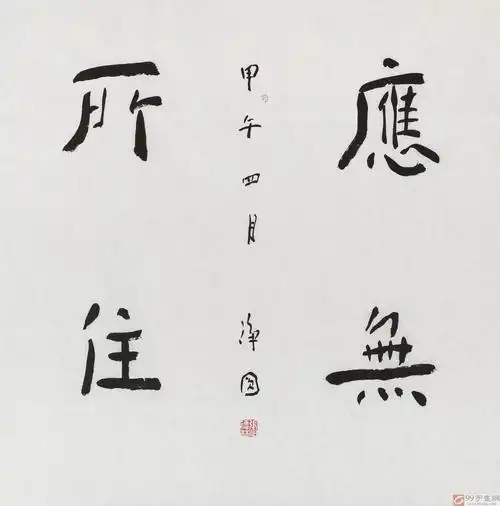 應無
所住
甲午四月 淨圓
99字画网